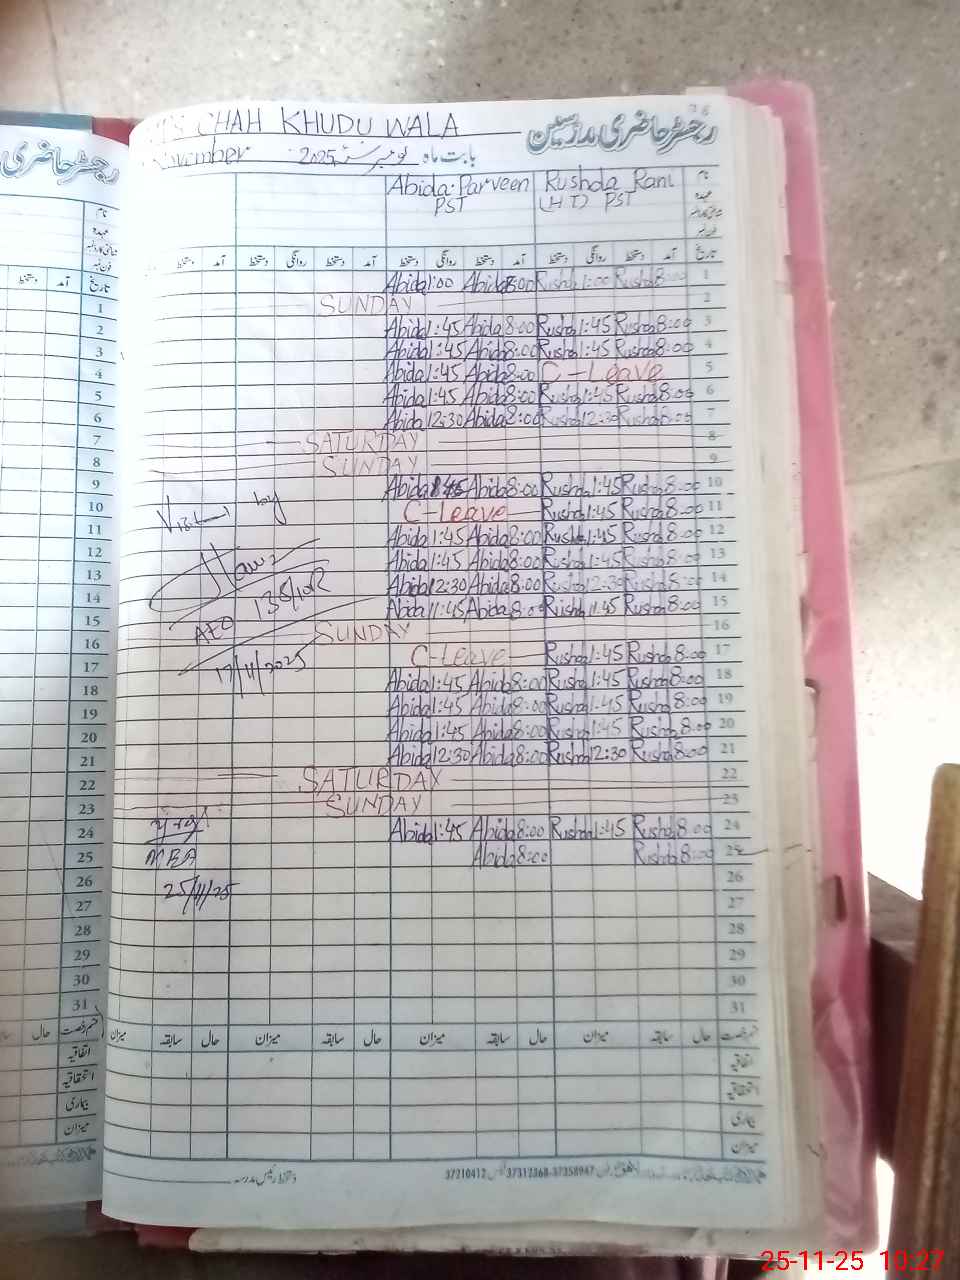 CHAH KHUDU WALA
رجسٹر حاضری مدرسین
November 2025 نومبر سنہ بابت ماہ
Abida Parveen PST
Rushda Rani (HT) PST
نام
عہدہ
تاریخ آمد دستخط روانگی دستخط آمد دستخط روانگی دستخط آمد دستخط
Abida 1:00 Abida 8:00 Rushda 1:00 Rushda 8:00 1
SUNDAY 2
Abida 1:45 Abida 8:00 Rushda 1:45 Rushda 8:00 3
Abida 1:45 Abida 8:00 Rushda 1:45 Rushda 8:00 4
Abida 1:45 Abida 8:00 C-Leave 5
Abida 1:45 Abida 8:00 Rushda 1:45 Rushda 8:00 6
Abida 12:30 Abida 8:00 Rushda 12:30 Rushda 8:00 7
SATURDAY 8
SUNDAY 9
Abida 1:45 Abida 8:00 Rushda 1:45 Rushda 8:00 10
C-Leave Rushda 1:45 Rushda 8:00 11
Abida 1:45 Abida 8:00 Rushda 1:45 Rushda 8:00 12
Abida 1:45 Abida 8:00 Rushda 1:45 Rushda 8:00 13
Abida 12:30 Abida 8:00 Rushda 12:30 Rushda 8:00 14
Abida 11:45 Abida 8:00 Rushda 11:45 Rushda 8:00 15
SUNDAY 16
C-Leave Rushda 1:45 Rushda 8:00 17
Abida 1:45 Abida 8:00 Rushda 1:45 Rushda 8:00 18
Abida 1:45 Abida 8:00 Rushda 1:45 Rushda 8:00 19
Abida 1:45 Abida 8:00 Rushda 1:45 Rushda 8:00 20
Abida 12:30 Abida 8:00 Rushda 12:30 Rushda 8:00 21
SATURDAY 22
SUNDAY 23
Abida 1:45 Abida 8:00 Rushda 1:45 Rushda 8:00 24
Abida 8:00 Rushda 8:00 25
26
27
28
29
30
31
Visit by
AEO
17/11/2025
MEA
25/11/25
قسم رخصت حال سابقہ میزان حال سابقہ میزان حال سابقہ میزان
اتفاقیہ
استحقاقیہ
بیماری
میزان
دستخط رئیس مدرسہ
37210412 37312368-37358947
رجسٹر حاضری
نام
عہدہ
فون نمبر
تاریخ آمد دستخط
1
2
3
4
5
6
7
8
9
10
11
12
13
14
15
16
17
18
19
20
21
22
23
24
25
26
27
28
29
30
31
قسم رخصت حال
اتفاقیہ
استحقاقیہ
بیماری
میزان
25-11-25 10:27